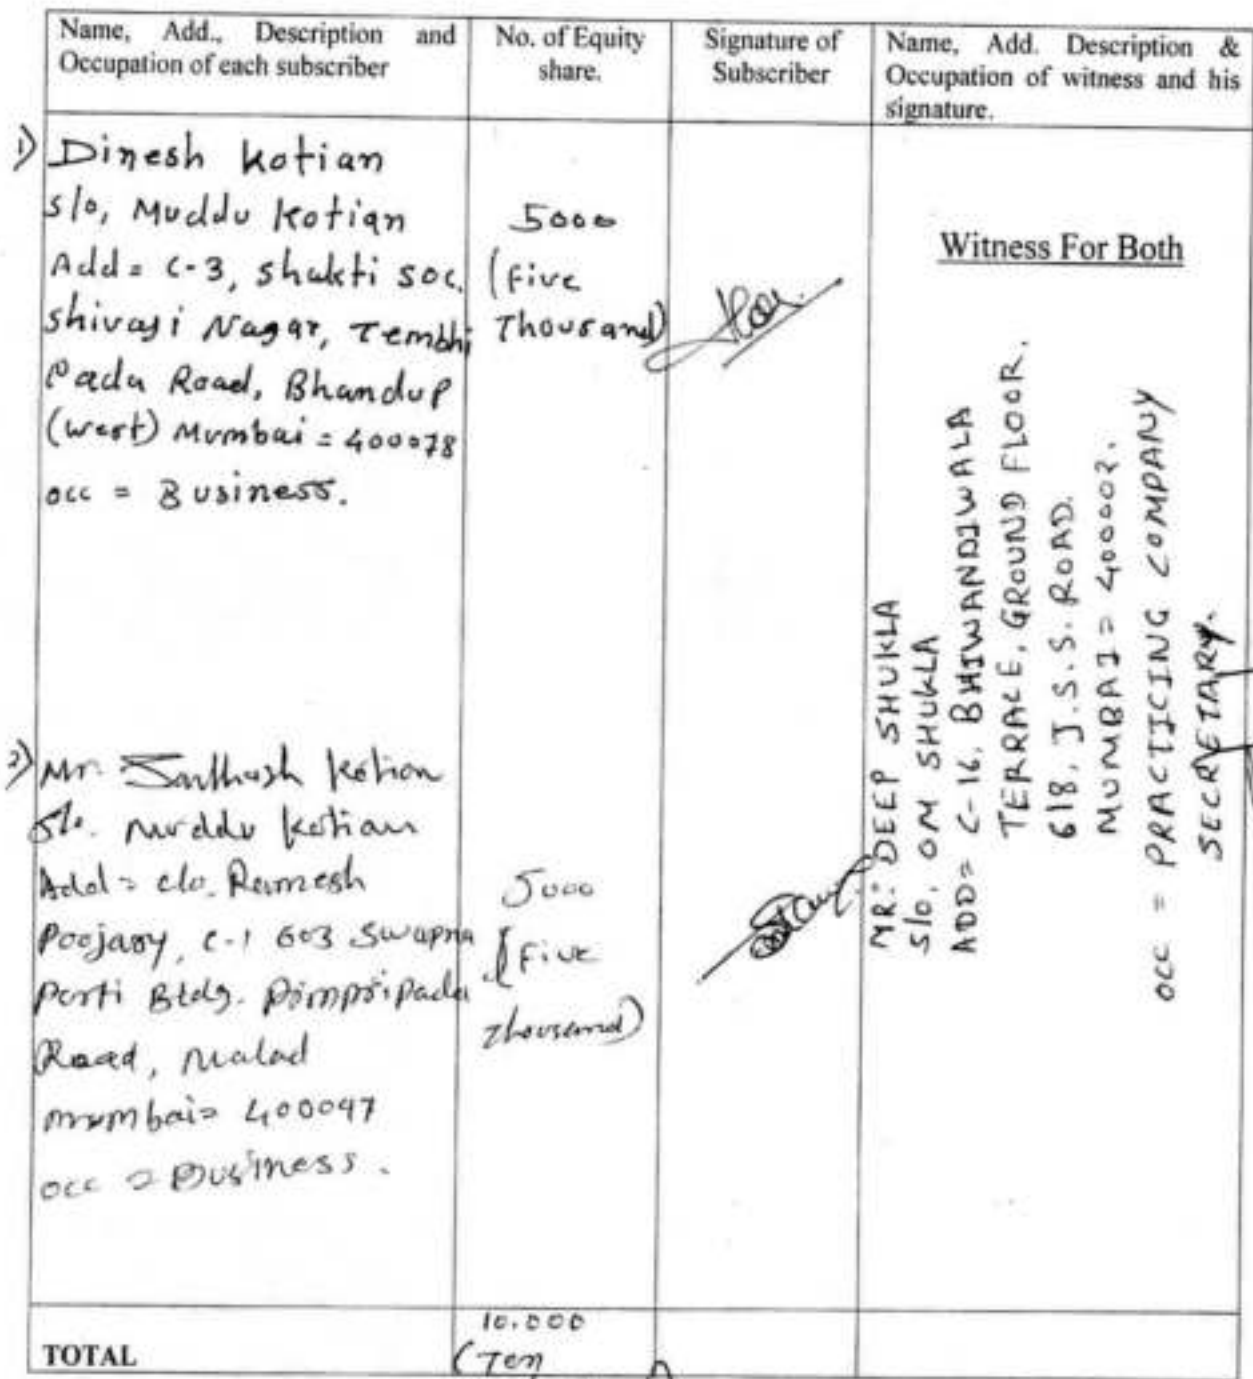 Name, Add., Description and
Occupation of each subscriber
No. of Equity
share.
Signature of
Subscriber
Name, Add. Description &
Occupation of witness and his
signature.
1) Dinesh Kotian
S/o, Muddu Kotian
Add = C-3, Shakti Soc.
Shivaji Nagar, Tembhi
Pada Road, Bhandup
(West) Mumbai = 400078
occ = Business.
5000
(Five
Thousand)
Witness For Both
MR. DEEP SHUKLA
S/o. OM SHUKLA
ADD= C-16, BHIWANDIWALA
TERRACE, GROUND FLOOR.
618, J.S.S. ROAD.
MUMBAI = 400002.
OCC = PRACTICING COMPANY
SECRETARY.
2) Mr. Santhosh Kotian
S/o. Muddu Kotian
Add = c/o. Ramesh
Poojary, C-1 603 Swapna
Purti Bldg. Pimpripada
Road, Malad
Mumbai = 400097
occ = Business.
5000
(Five
Thousand)
TOTAL
10.000
(Ten